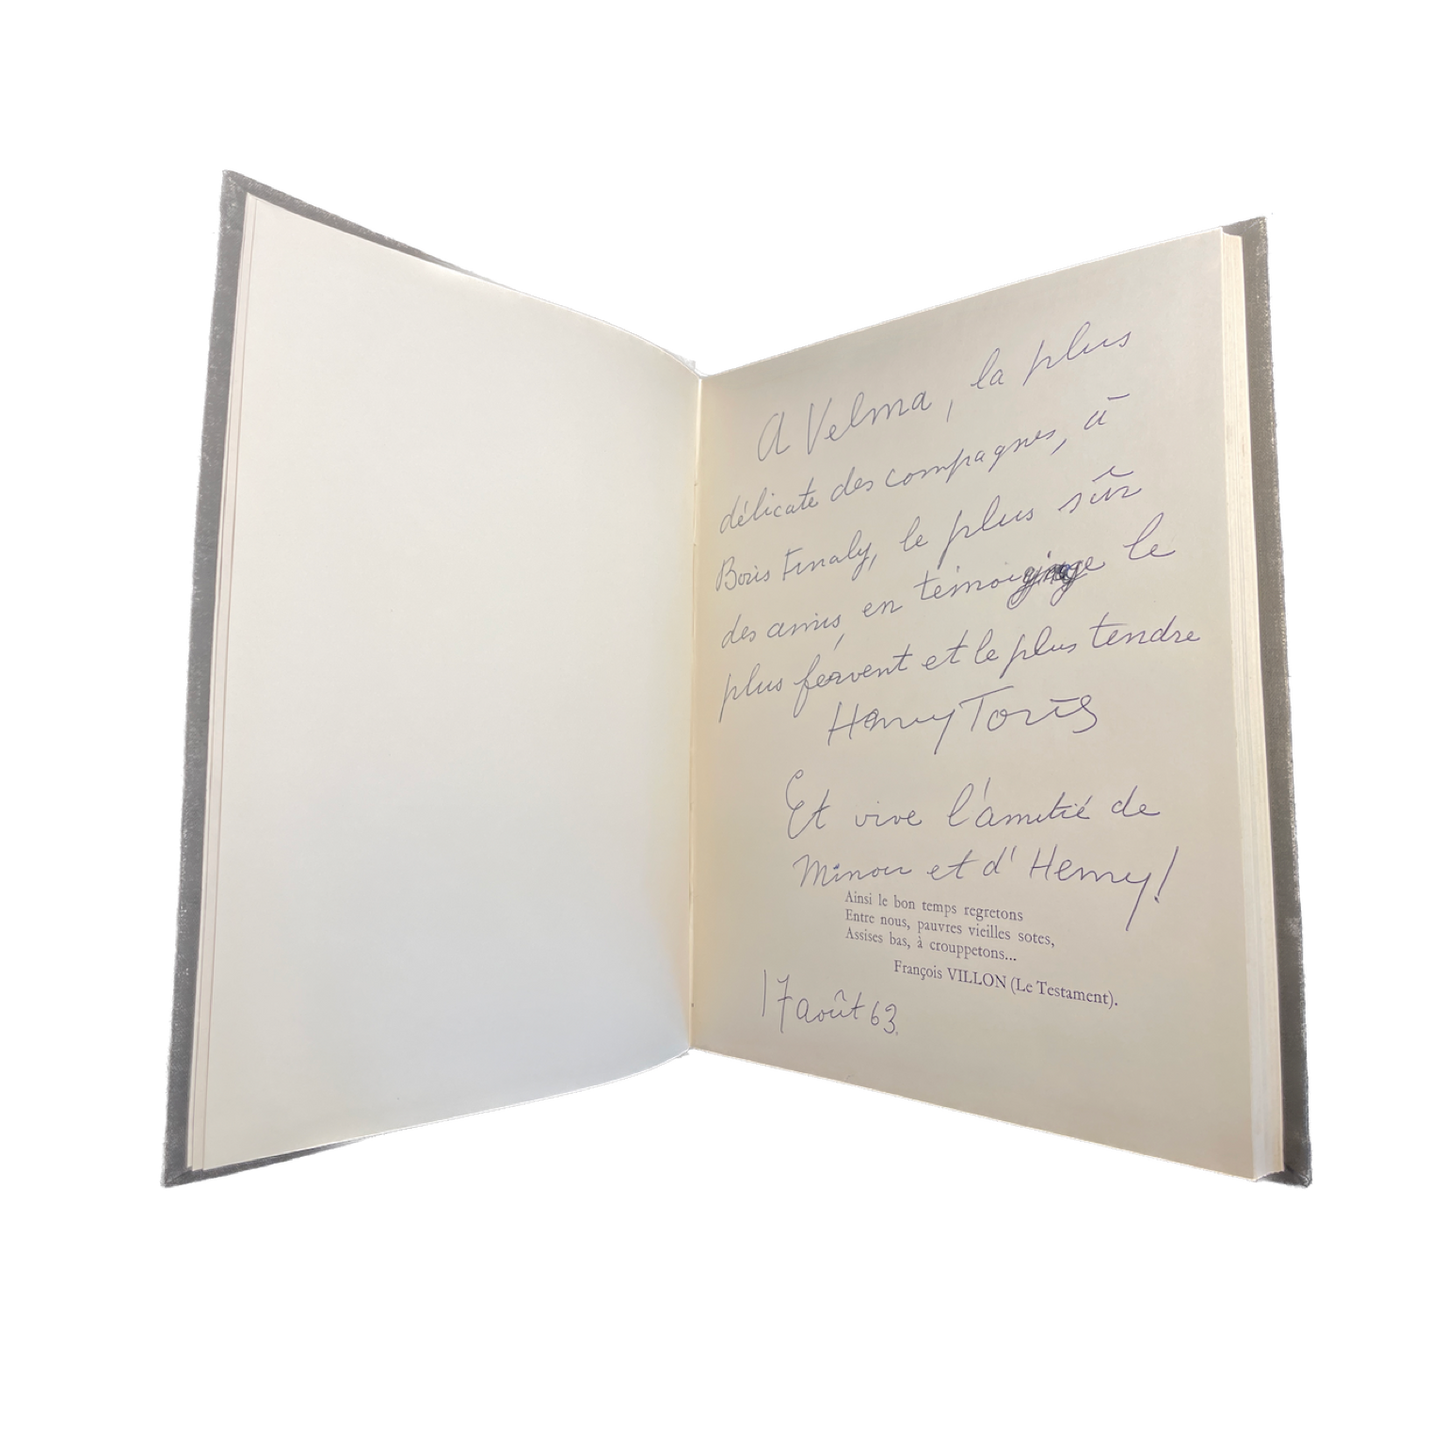 A Velma, la plus
délicate des compagnes, à
Boris Finaly, le plus sûr
des amis, en témoignage le
plus fervent et le plus tendre
Henry Torrès
Et vive l'amitié de
Minou et d'Henry!
Ainsi le bon temps regretons
Entre nous, pauvres vieilles sotes,
Assises bas, à crouppetons...
François VILLON (Le Testament).
17 août 63.